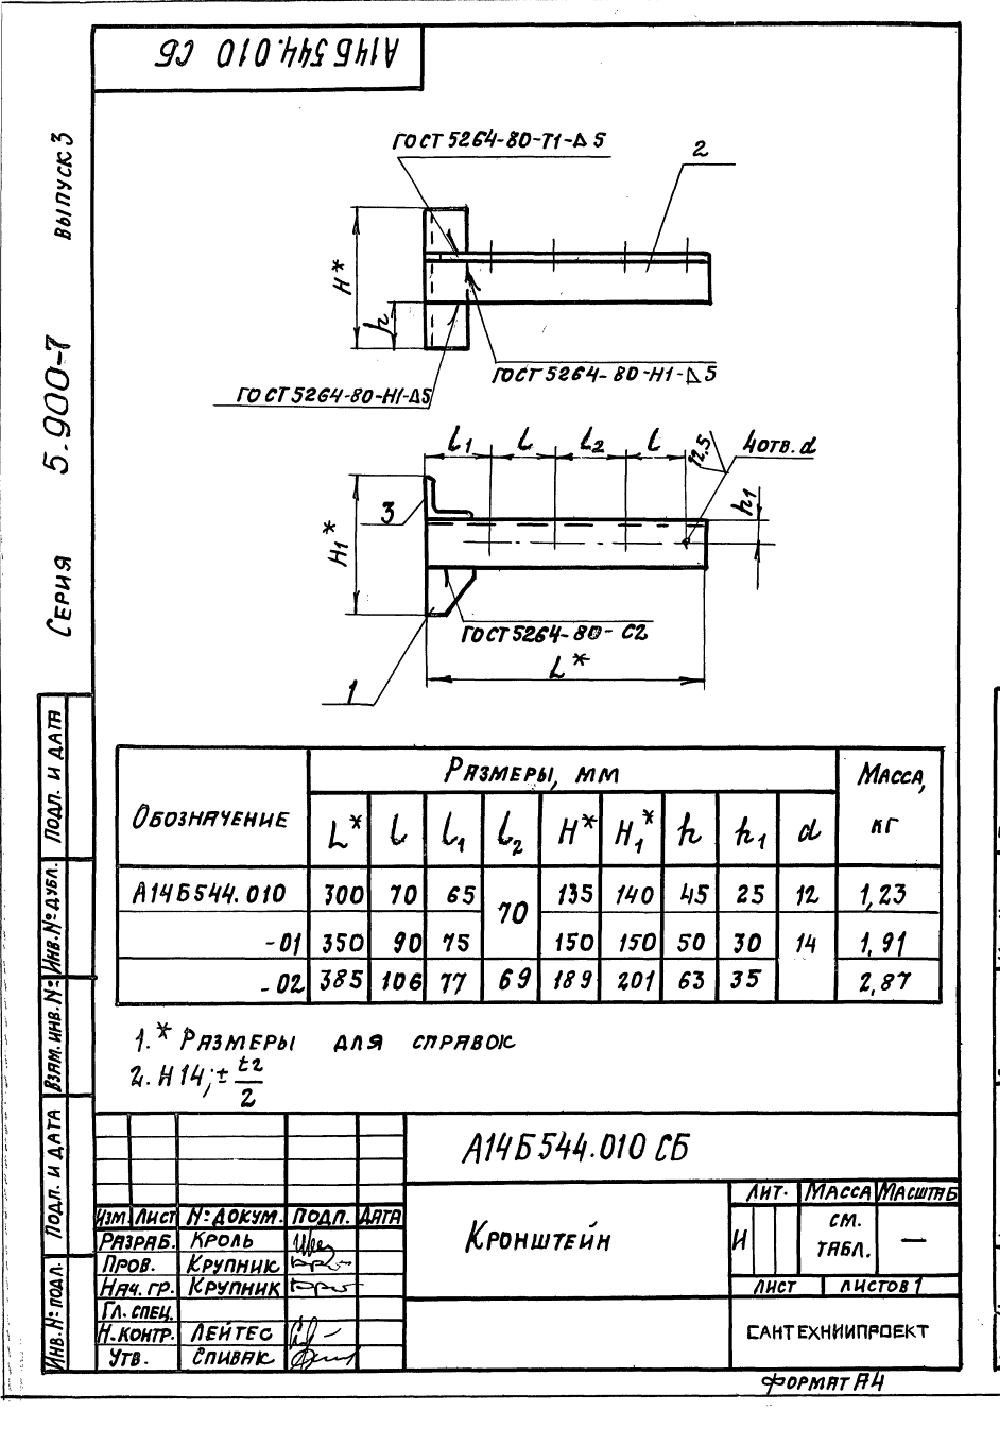 А14Б544.010 СБ
Серия 5.900-7 выпуск 3
ГОСТ 5264-80-Т1-⊿5
2
H*
h
ГОСТ 5264-80-Н1-⊿5
ГОСТ 5264-80-Н1-⊿5
l1 l l2 l
12,5
4 отв. d
h1
3
H1*
ГОСТ 5264-80-С2
L*
1
Обозначение Размеры, мм Масса, кг
L* l l1 l2 H* H1* h h1 d
А14Б544.010 300 70 65 70 135 140 45 25 12 1,23
-01 350 90 75 150 150 50 30 14 1,91
-02 385 106 77 69 189 201 63 35 2,87
1.* Размеры для справок
2. Н14; ± t2/2
Подп. и дата
Инв.№ дубл.
Взам. инв.№
Подп. и дата
Инв.№ подл.
А14Б544.010 СБ
Изм. Лист № докум. Подп. Дата
Разраб. Кроль
Пров. Крупник
Нач. гр. Крупник
Гл. спец.
Н.контр. Лейтес
Утв. Спивак
Кронштейн
Лит. Масса Масштаб
И см. табл. —
Лист Листов 1
САНТЕХНИИПРОЕКТ
Формат А4